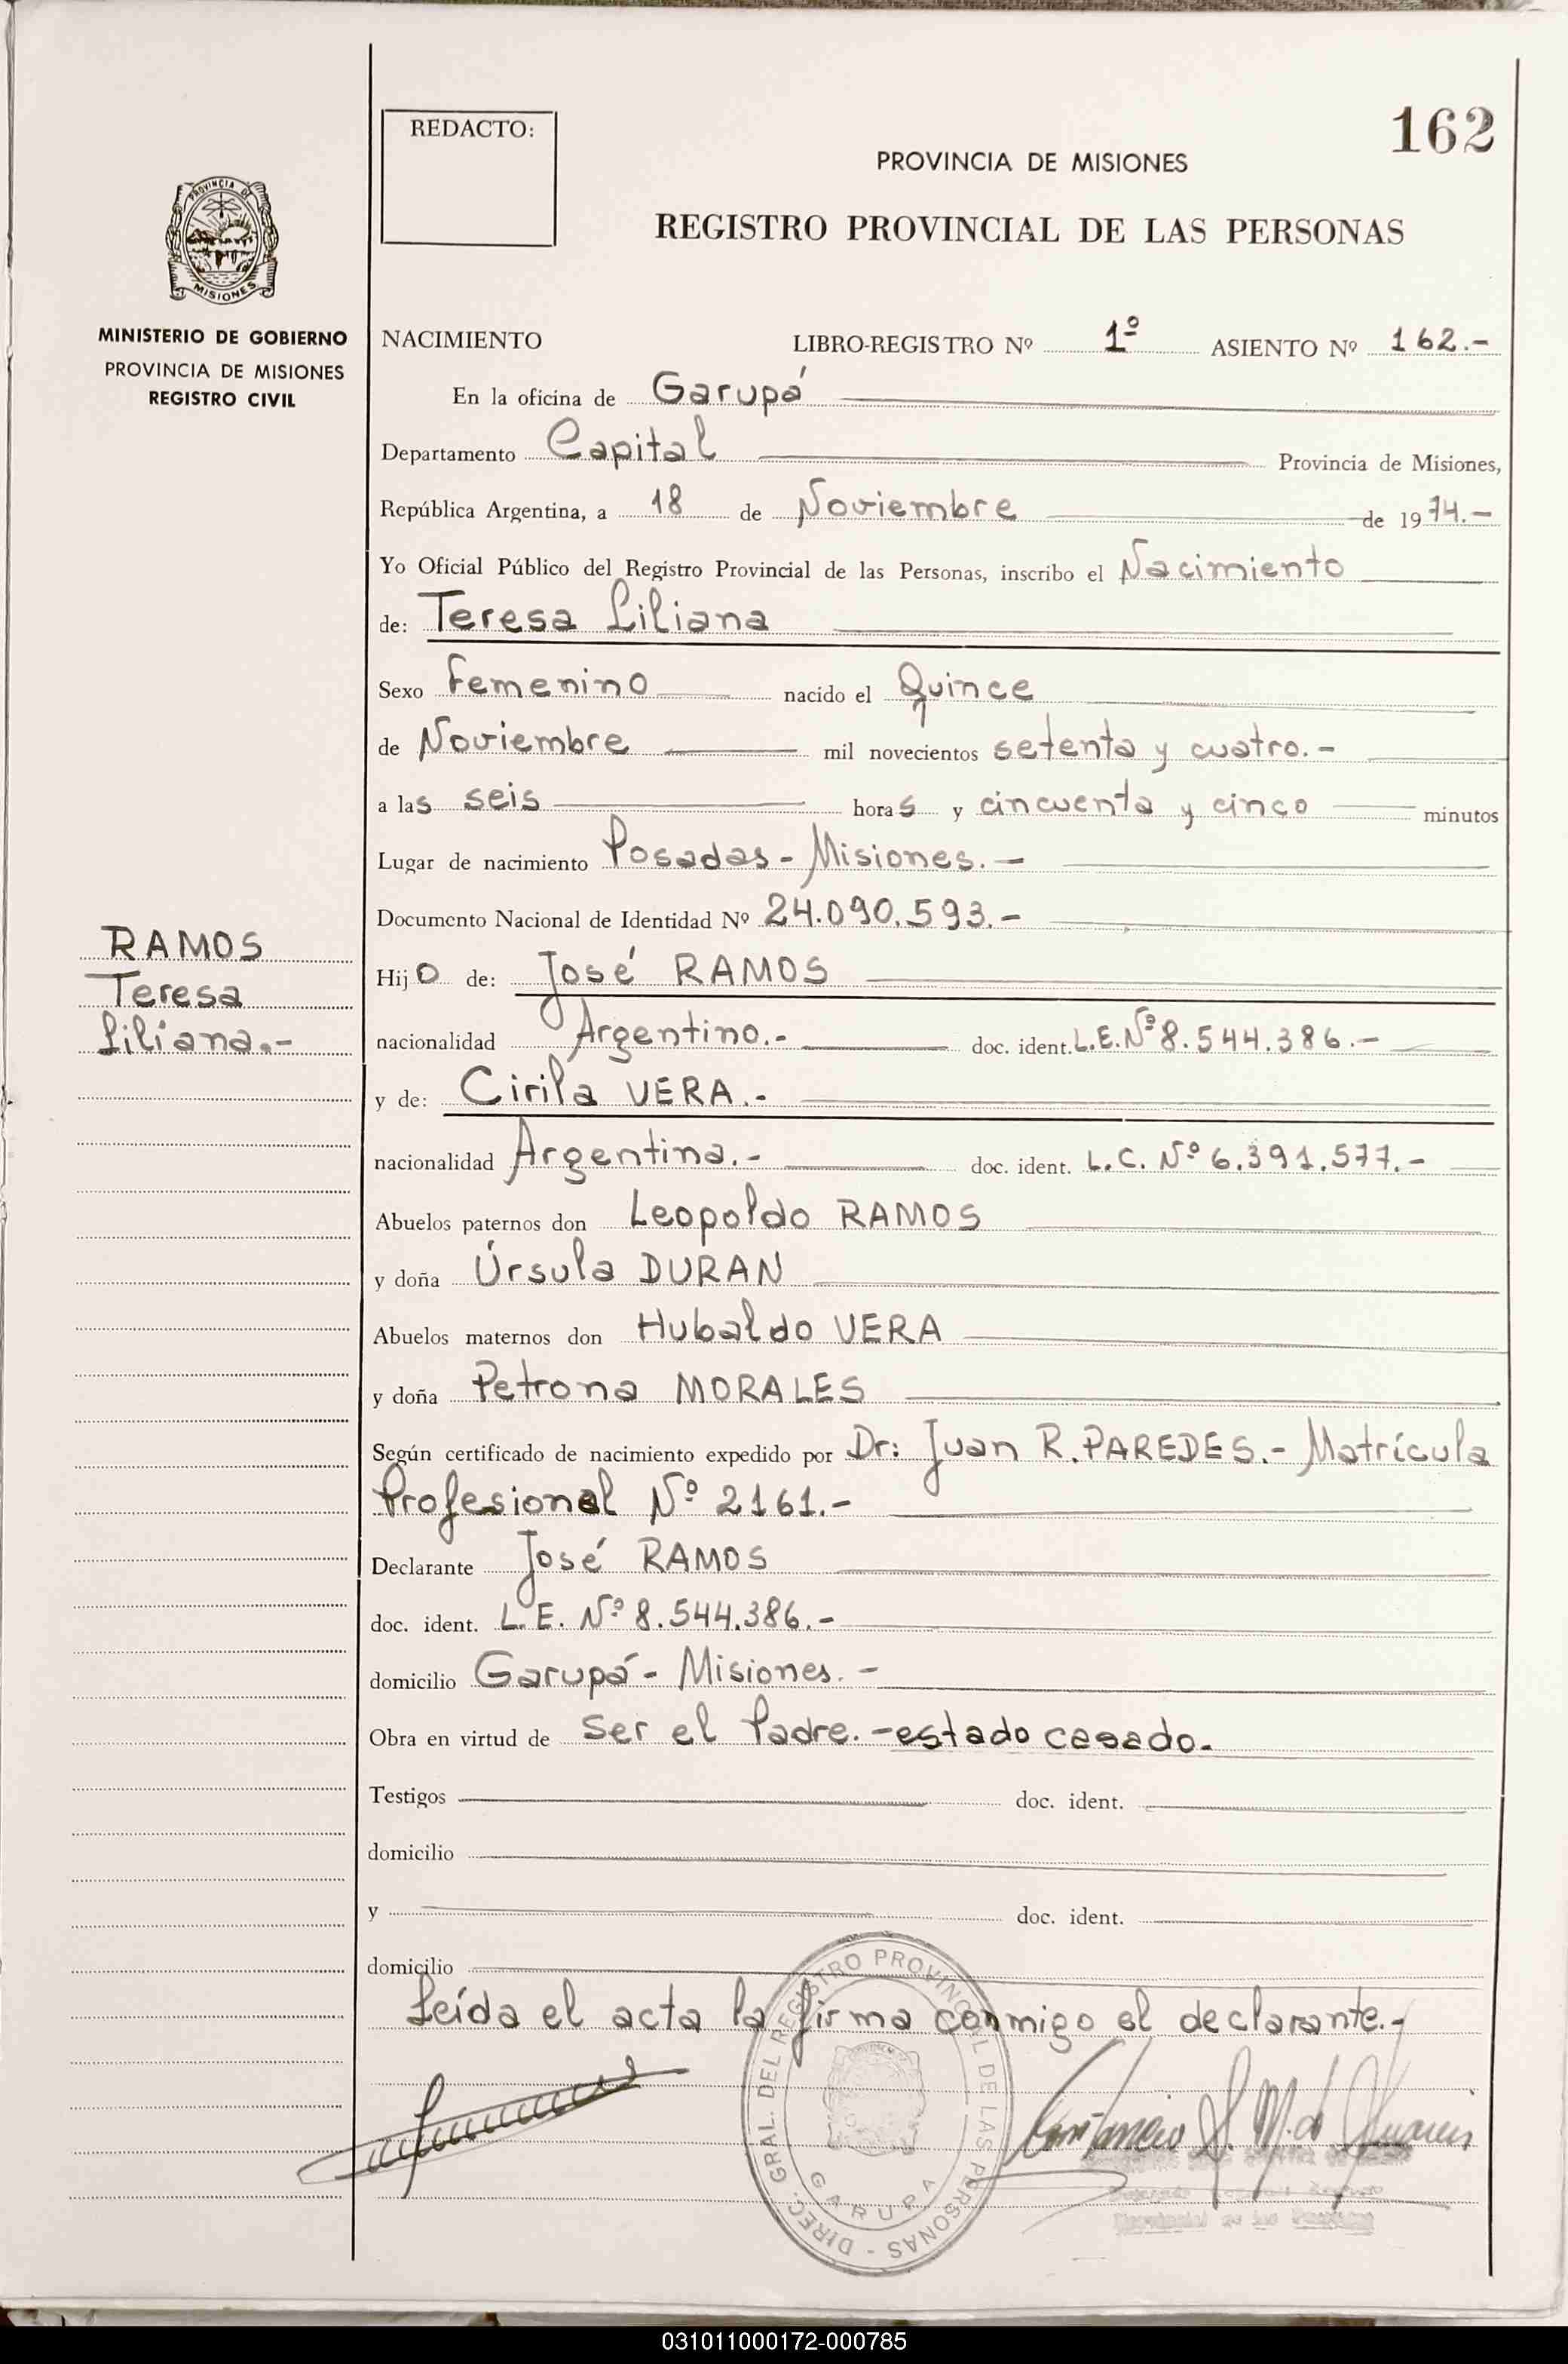 REDACTO:
162
PROVINCIA DE MISIONES
REGISTRO PROVINCIAL DE LAS PERSONAS
PROVINCIA DE
MISIONES
MINISTERIO DE GOBIERNO
PROVINCIA DE MISIONES
REGISTRO CIVIL
NACIMIENTO LIBRO-REGISTRO Nº 1º ASIENTO Nº 162.-
En la oficina de Garupá
Departamento Capital Provincia de Misiones,
República Argentina, a 18 de Noviembre de 1974.-
Yo Oficial Público del Registro Provincial de las Personas, inscribo el Nacimiento
de: Teresa Liliana
Sexo Femenino nacido el Quince
de Noviembre mil novecientos setenta y cuatro.-
a las seis horas y cincuenta y cinco minutos
Lugar de nacimiento Posadas - Misiones.-
Documento Nacional de Identidad Nº 24.090.593.-
RAMOS
Teresa
Liliana.-
Hijo de: José RAMOS
nacionalidad Argentino.- doc. ident. L.E.Nº 8.544.386.-
y de: Cirila VERA.-
nacionalidad Argentina.- doc. ident. L.C. Nº 6.391.577.-
Abuelos paternos don Leopoldo RAMOS
y doña Úrsula DURAN
Abuelos maternos don Hubaldo VERA
y doña Petrona MORALES
Según certificado de nacimiento expedido por Dr: Juan R. PAREDES.- Matrícula
Profesional Nº 2161.-
Declarante José RAMOS
doc. ident. L.E. Nº 8.544.386.-
domicilio Garupá - Misiones.-
Obra en virtud de ser el Padre.- estado casado.-
Testigos doc. ident.
domicilio
y doc. ident.
domicilio
Leída el acta la firma conmigo el declarante.-
DIREC. GRAL. DEL REGISTRO PROVINCIAL DE LAS PERSONAS -
GARUPA
031011000172-000785